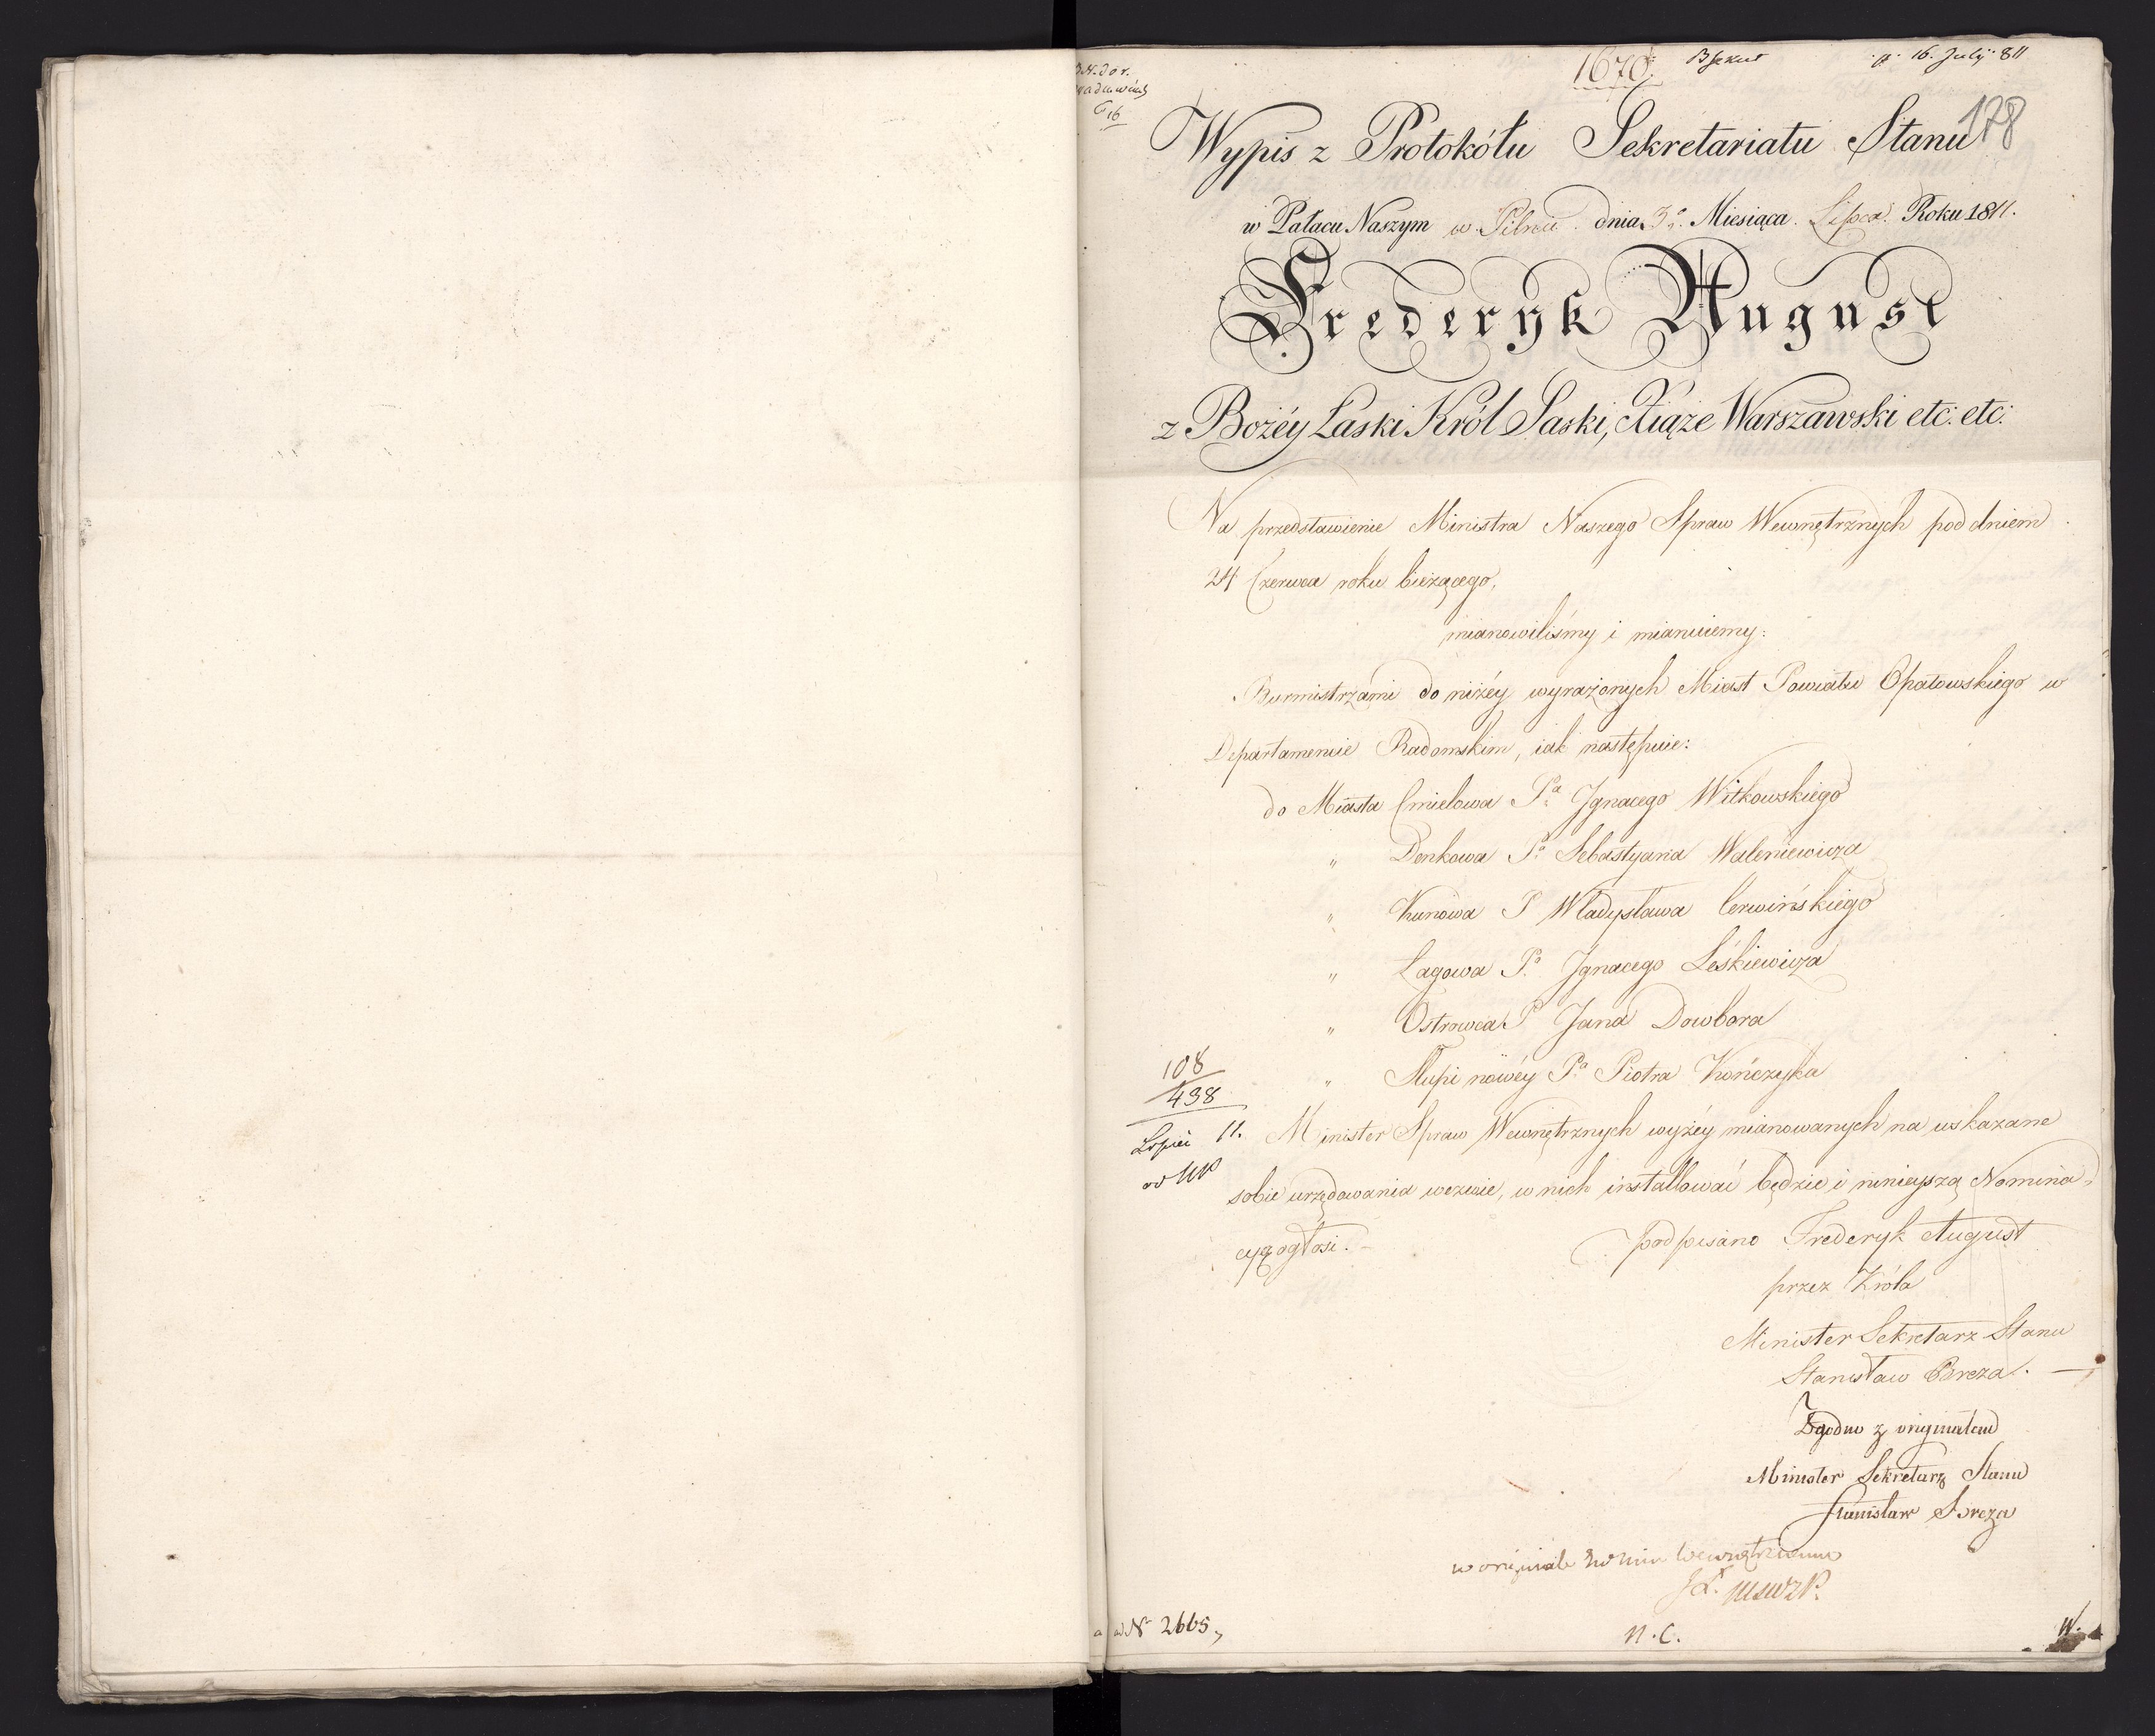 1670. p. 16. July 811
178
Wypis z Protokółu Sekretariatu Stanu
w Pałacu Naszym w Pilnic. dnia 3o. Miesiąca. Lipca. Roku 1811.
Frederyk August
z Bożéy Łaski Król Saski, Xiąże Warszawski etc: etc:
Na przedstawienie Ministra Naszego Spraw Wewnętrznych pod dniem
24 Czerwca roku bieżącego,
mianowiliśmy i mianuiemy:
Burmistrzami do niżéy wyrażonych Miast Powiatu Opatowskiego w
Departamencie Radomskim, iak następuie:
do Miasta Cmielowa Pa. Jgnacego Witkowskiego
" Denkowa Pa. Sebastyana Waleniewicza
" Kunowa P Władysława Cerwińskiego
" Łagowa Pa. Jgnacego Leśkiewicza
" Ostrowca P Jana Dowbora
" Słupi nowéy Pa. Piotra Kończyka
108
438
Lipiec 11.
Minister Spraw Wewnętrznych wyżéy mianowanych na wskazane
sobie urzędowania wezwie, w nich installować będzie i ninieyszą Nomina-
cyą ogłosi.-
podpisano Frederyk August
przez Króla
Minister Sekretarz Stanu
Stanisław Breza. —
Zgodno z originałem
Minister Sekretarz Stanu
Stanisław Breza
ad Nr 2665,
n.c.
W.